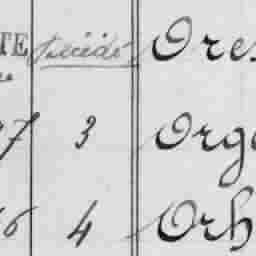 TE décédé Ores
7 3 Orga
6 4 Orh